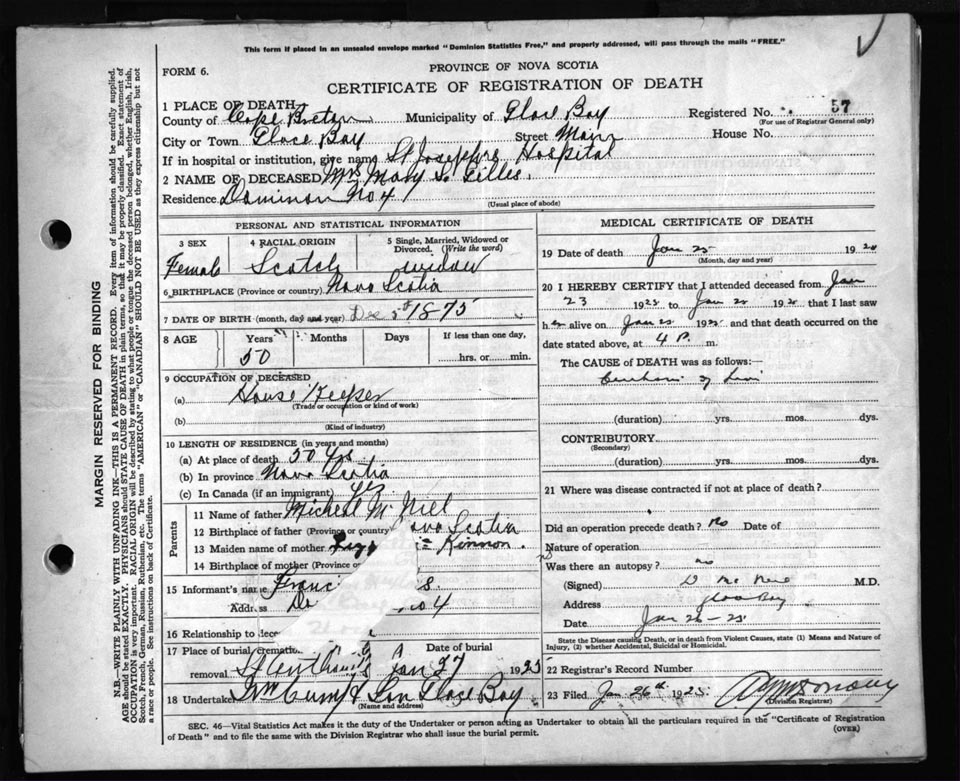 This form if placed in an unsealed envelope marked "Dominion Statistics Free," and properly addressed, will pass through the mails "FREE."
FORM 6.
PROVINCE OF NOVA SCOTIA
CERTIFICATE OF REGISTRATION OF DEATH
1 PLACE OF DEATH
County of Cape Breton Municipality of Glace Bay Registered No. 57
(For use of Registrar General only)
City or Town Glace Bay Street Main House No.
If in hospital or institution, give name St Josephs Hospital
2 NAME OF DECEASED Mrs Mary S. Gillis.
Residence Dominion No 4
(Usual place of abode)
PERSONAL AND STATISTICAL INFORMATION
3 SEX 4 RACIAL ORIGIN 5 Single, Married, Widowed or Divorced. (Write the word)
Female Scotch widow
6 BIRTHPLACE (Province or country) Nova Scotia
7 DATE OF BIRTH (month, day and year) Dec 5th 1875
8 AGE Years Months Days If less than one day,
50 hrs. or min.
9 OCCUPATION OF DECEASED
(a) House Keeper
(Trade or occupation or kind of work)
(b)
(Kind of industry)
10 LENGTH OF RESIDENCE (in years and months)
(a) At place of death 50 yrs
(b) In province Nova Scotia
(c) In Canada (if an immigrant) yes
Parents
11 Name of father Micheal Mc Niel
12 Birthplace of father (Province or country) ova Scotia
13 Maiden name of mother Kinnon.
14 Birthplace of mother (Province or
15 Informant's name Franc s.
Address No 4
16 Relationship to dece
17 Place of burial, cremation Date of burial
removal St Anthonys Jan 27 1925
18 Undertaker & Son Glace Bay
(Name and address)
MEDICAL CERTIFICATE OF DEATH
19 Date of death Jan 25 19
(Month, day and year)
20 I HEREBY CERTIFY that I attended deceased from Jan
23 1925 to Jan 25 1925 that I last saw
her alive on Jan 25 1925 and that death occurred on the
date stated above, at 4 P. m.
The CAUSE of DEATH was as follows:—
of
(duration) yrs. mos. dys.
CONTRIBUTORY
(Secondary)
(duration) yrs. mos. dys.
21 Where was disease contracted if not at place of death?
Did an operation precede death? no Date of
Nature of operation
Was there an autopsy? no
(Signed) Mc Neil M.D.
Address Glace Bay
Date Jan 26 - 25
State the Disease causing Death, or in death from Violent Causes, state (1) Means and Nature of
Injury, (2) whether Accidental, Suicidal or Homicidal.
22 Registrar's Record Number
23 Filed Jan 26th 1925.
(Division Registrar)
SEC. 46—Vital Statistics Act makes it the duty of the Undertaker or person acting as Undertaker to obtain all the particulars required in the "Certificate of Registration
of Death" and to file the same with the Division Registrar who shall issue the burial permit.
(OVER)
MARGIN RESERVED FOR BINDING
N.B.—WRITE PLAINLY WITH UNFADING INK—THIS IS A PERMANENT RECORD. Every item of information should be carefully supplied.
AGE should be stated EXACTLY. PHYSICIANS should STATE CAUSE OF DEATH in plain terms, so that it may be properly classified. Exact statement of
OCCUPATION is very important. RACIAL ORIGIN will be described by stating to what people or tongue the deceased person belonged, whether English, Irish,
Scotch, French, German, Russian, Ruthenian, etc. The terms "AMERICAN" or "CANADIAN" SHOULD NOT BE USED as they express citizenship but not
a race or people. See instructions on back of Certificate.